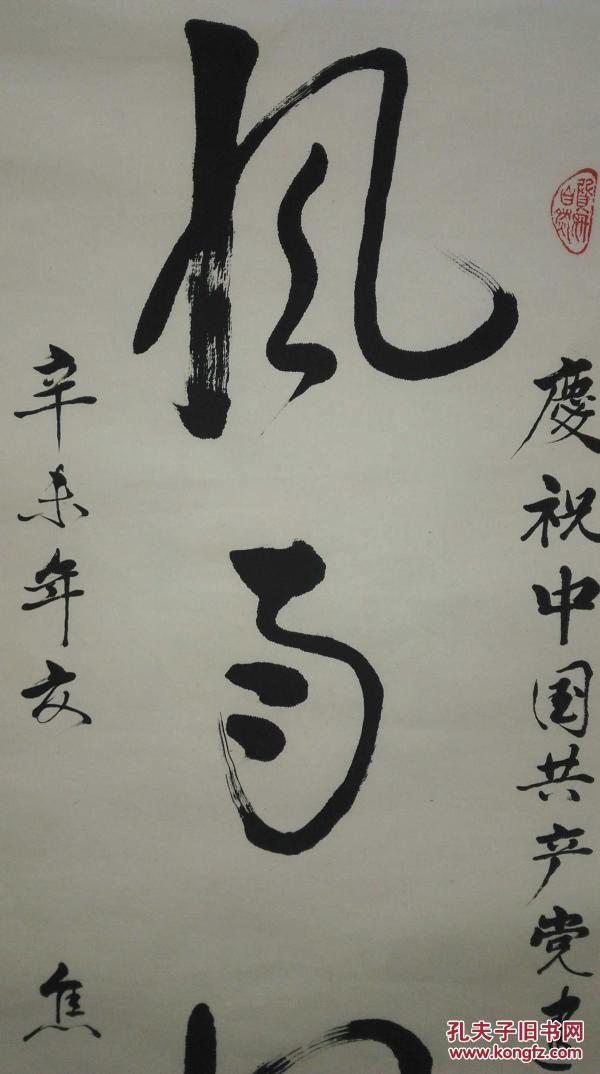 慶祝中国共产党建
風雨
辛未年
焦
孔夫子旧书网
www.kongfz.com